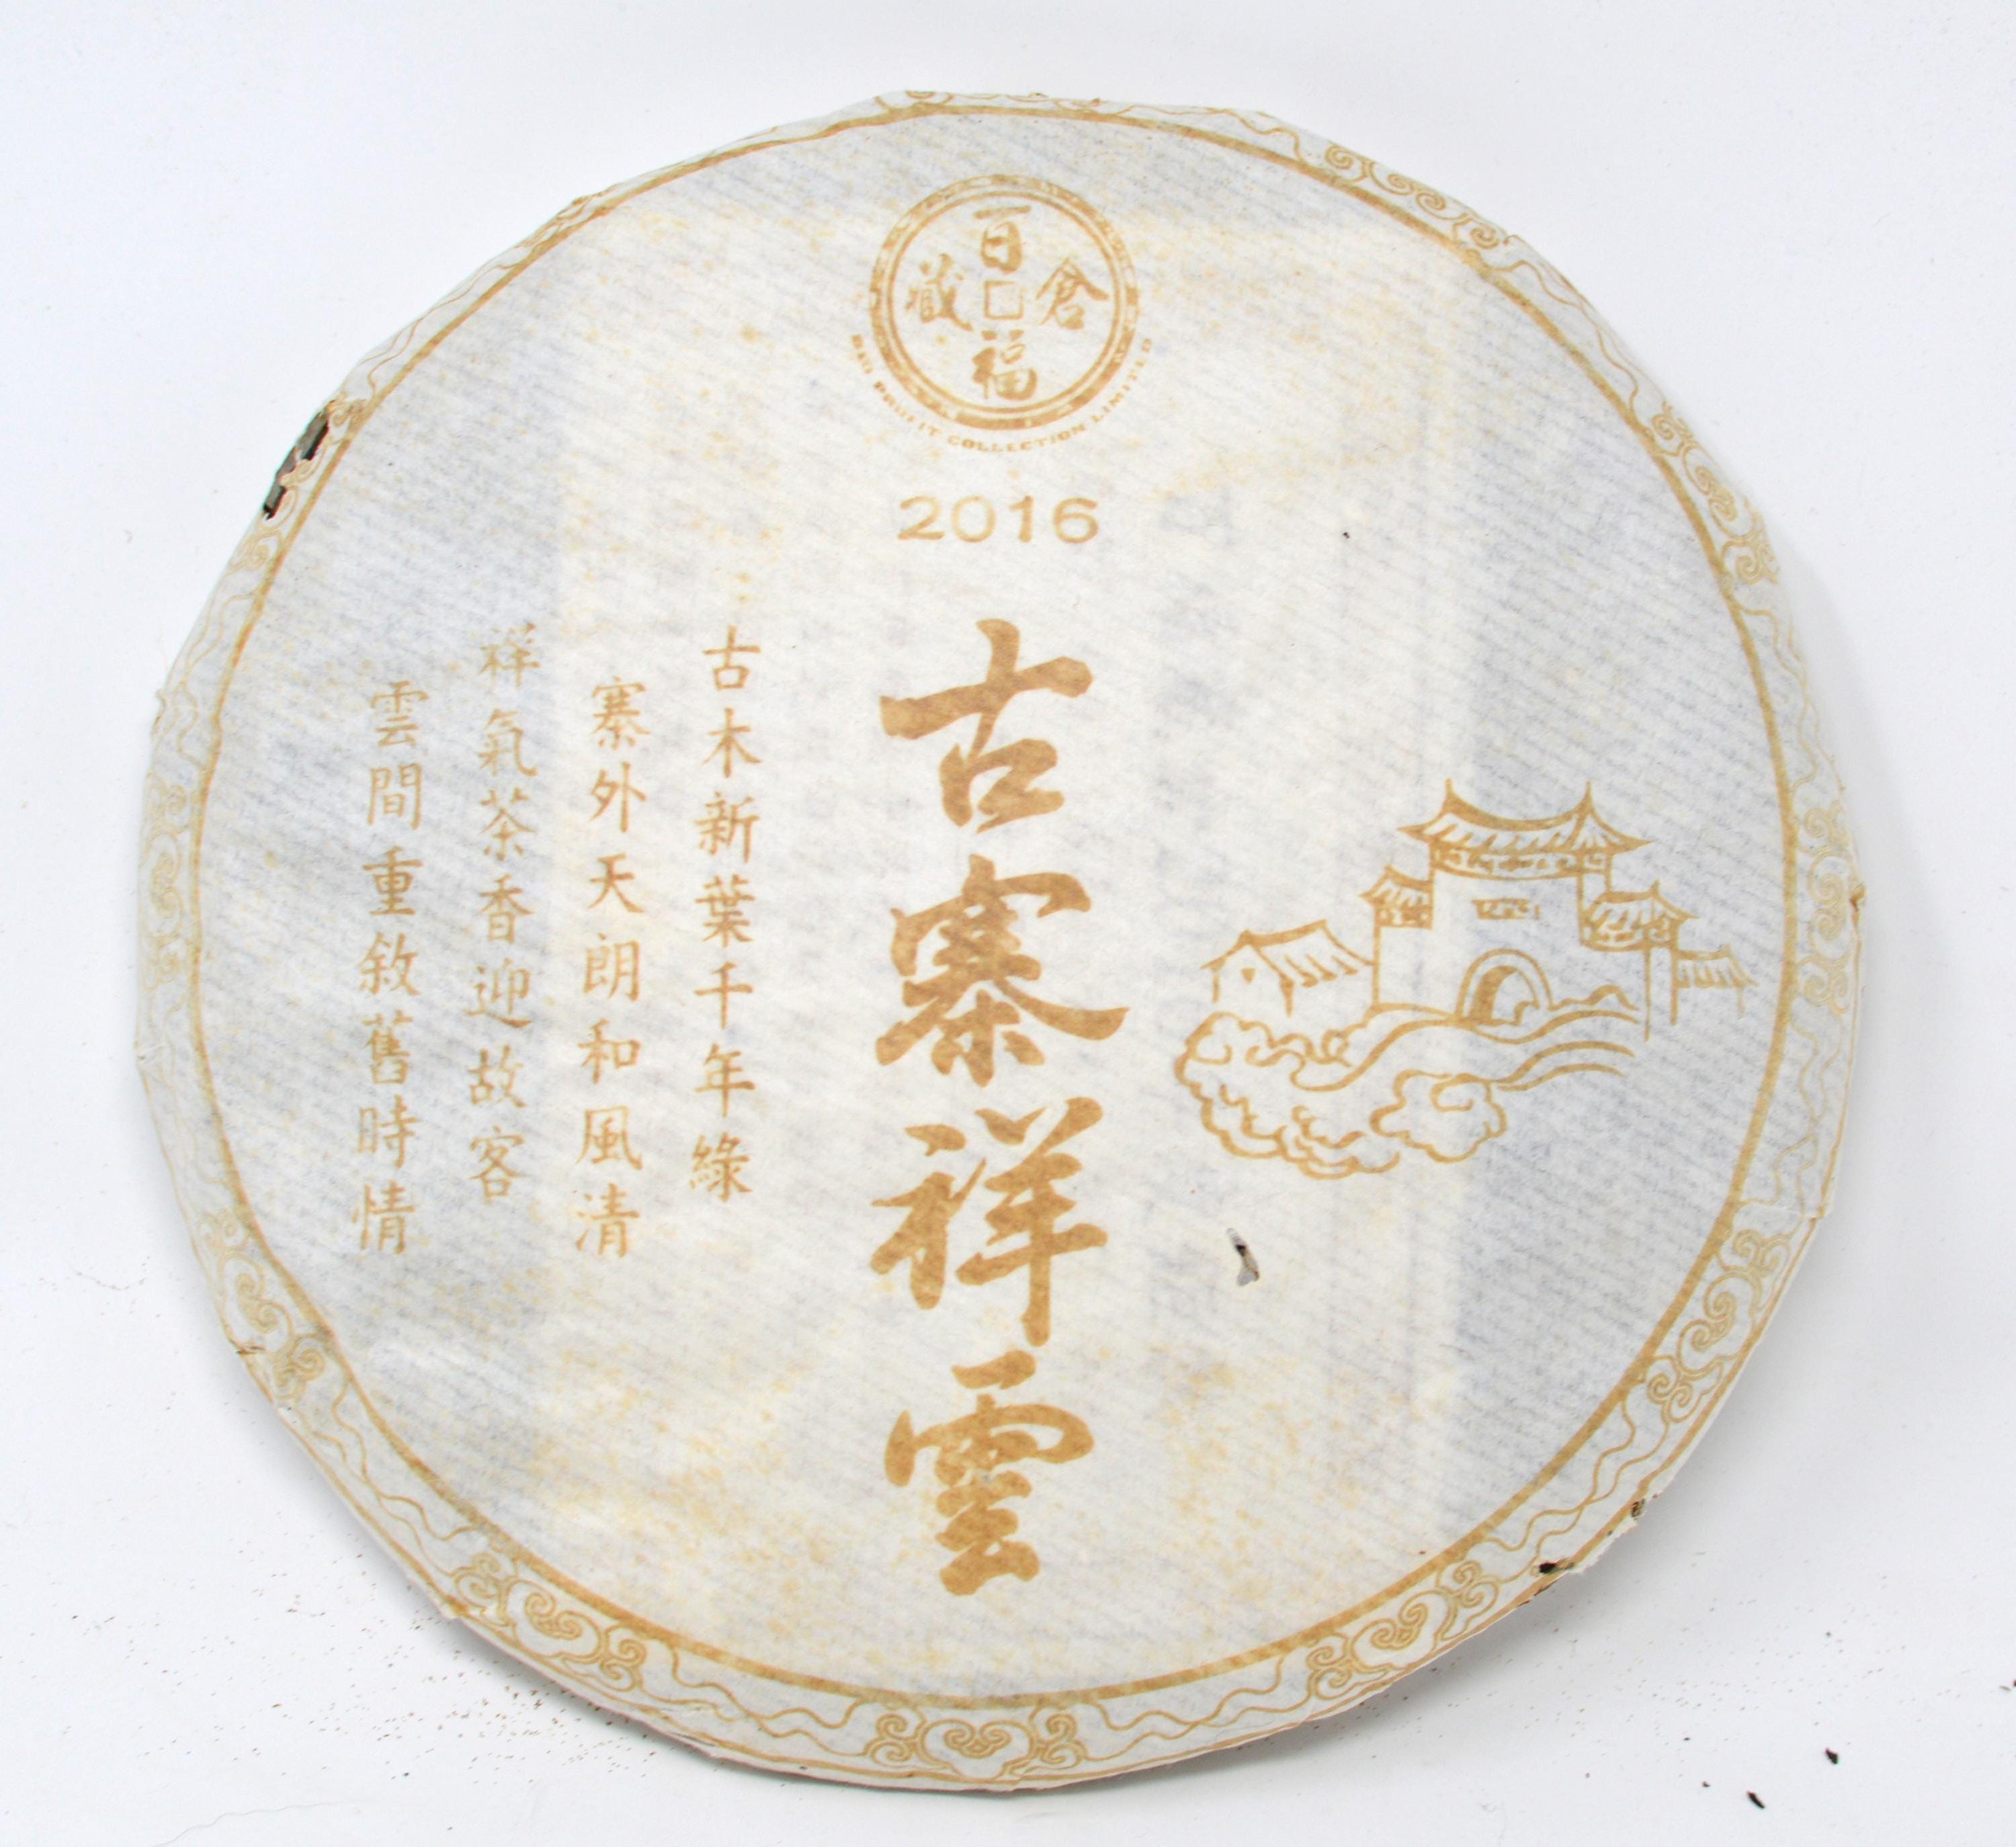 百福倉藏
COLLECTION LIMITED
2016
古寨祥雲
古木新葉千年綠
寨外天朗和風清
祥氣茶香迎故客
雲間重敘舊時情